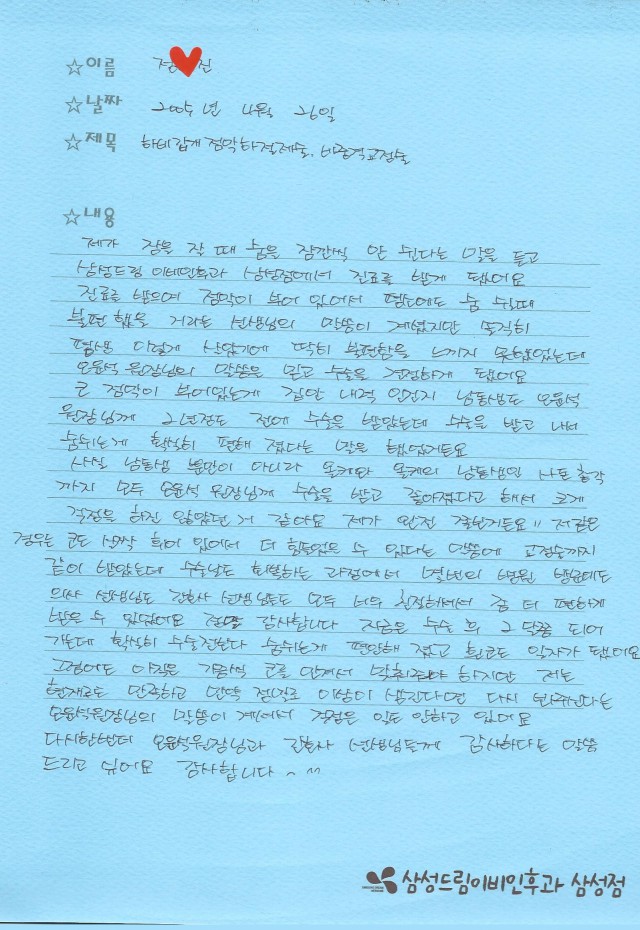 ☆이름 정 진
☆날짜 2005년 4월 26일
☆제목 하비갑개 점막하절제술, 비중격교정술
☆내용
제가 잠을 잘 때 숨을 잠깐씩 안 쉰다는 말을 듣고
삼성드림이비인후과 삼성점에서 진료를 받게 됐어요
진료를 받으며 점막이 부어 있어서 평소에도 숨 쉴때
불편했을 거라는 선생님의 말씀이 계셨지만 솔직히
평생 이렇게 살았기에 딱히 불편함을 느끼지 못했었는데
오윤석 원장님의 말씀을 믿고 수술을 결정하게 됐어요
큰 점막이 부어있는게 집안 내력 인건지 남동생도 오윤석
원장님께 그 년정도 전에 수술을 받았는데 수술을 받고 나서
숨쉬는게 확실히 편해 졌다는 말을 했었거든요
사실 남동생 뿐만이 아니라 올케와 올케의 남동생인 사돈 총각
까지 모두 오윤석 원장님께 수술을 받고 좋아졌다고 해서 크게
걱정을 하진 않았던 거 같아요 제가 완전 거든요 저같은
경우는 코도 살짝 휘어 있어서 더 힘들었을 수 있다는 말씀에 교정술까지
같이 받았는데 수술날도 회복하는 과정에서 몇번의 병원 방문에도
의사 선생님도 간호사 선생님들도 모두 너무 친절하셔서 좀 더 편하게
받을 수 있었어요 정말 감사합니다 지금은 수술 후 그 달쯤 되어
가는데 확실히 수술전보다 숨쉬는게 편안해 졌고 됐어요
교정에도 아직은 가끔씩 코를 하지만 저는
현재로도 만족하고 만약 점막으로 이상이 생긴다면 다시 봐주신다는
오윤석원장님의 말씀이 계셔서 걱정은 일도 안하고 있어요
다시한번더 오윤석원장님과 간호사 선생님들께 감사하다는 말씀
드리고 싶어요 감사합니다 ^^
삼성드림이비인후과 삼성점